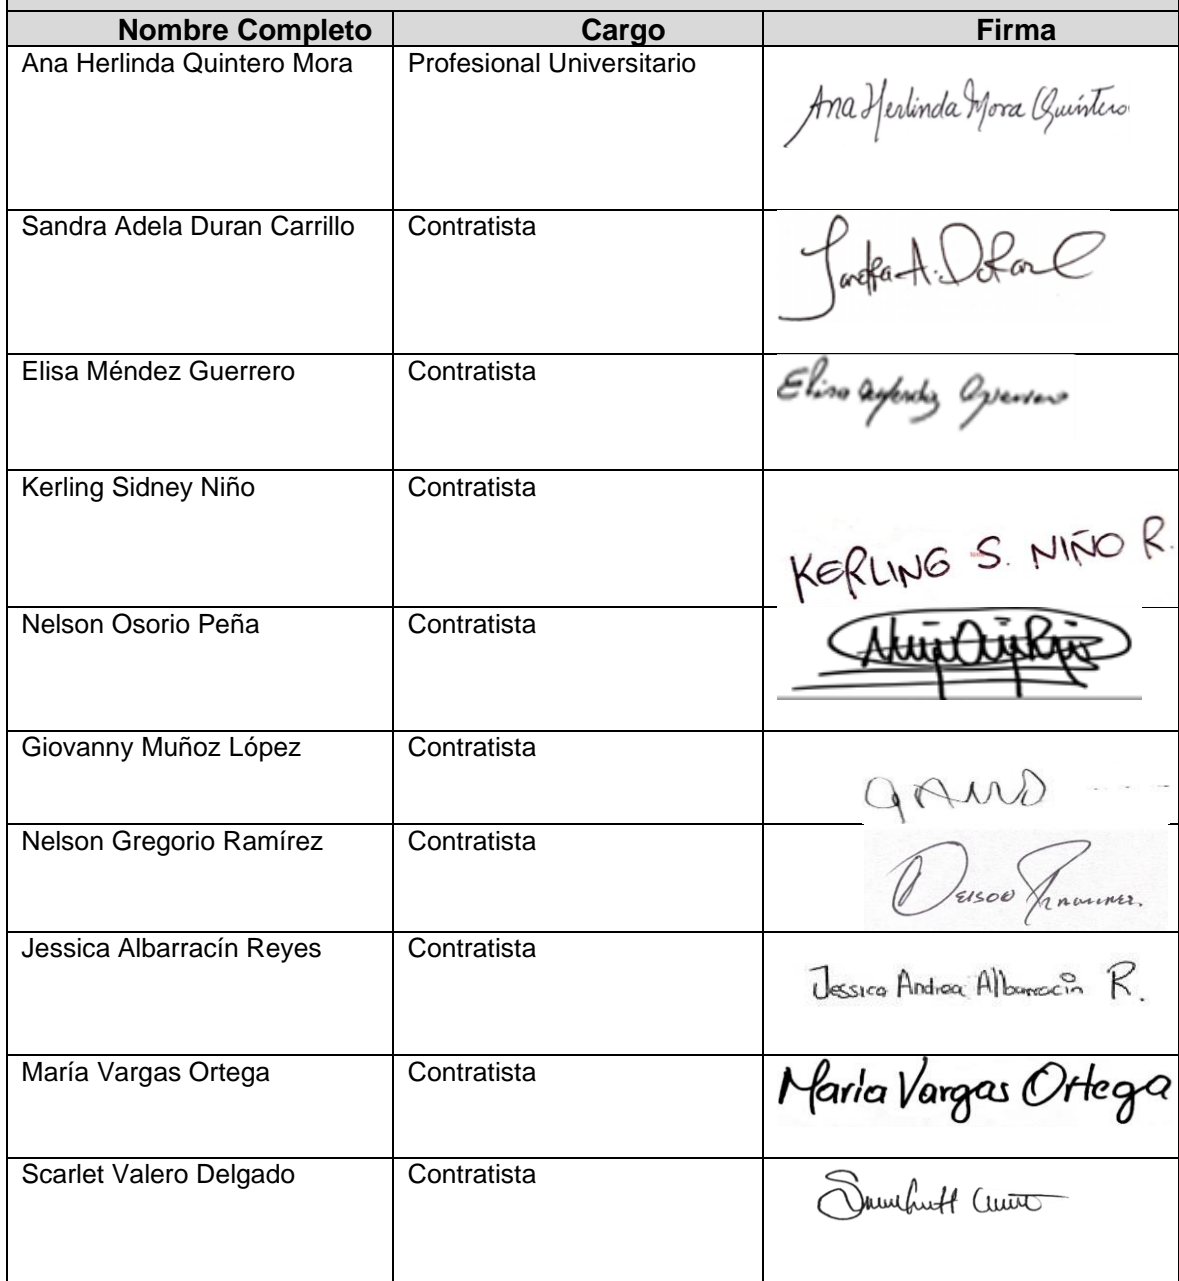 Nombre Completo Cargo Firma
Ana Herlinda Quintero Mora Profesional Universitario Ana Herlinda Mora Quintero
Sandra Adela Duran Carrillo Contratista Sandra A. Duran C
Elisa Méndez Guerrero Contratista Elisa Méndez Guerrero
Kerling Sidney Niño Contratista KERLING S. NIÑO R.
Nelson Osorio Peña Contratista
Giovanny Muñoz López Contratista
Nelson Gregorio Ramírez Contratista
Jessica Albarracín Reyes Contratista Jessica Andrea Albarracín R.
María Vargas Ortega Contratista María Vargas Ortega
Scarlet Valero Delgado Contratista